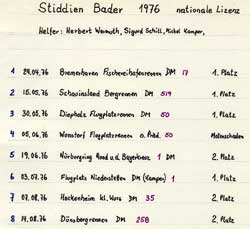 Stiddien Bader 1976 nationale Lizenz
Helfer: Herbert Wermuth, Sigurd Schill, Michel Kamper,
1 24.04.76 Bremerhaven Fischereihafenrennen DM 17 1. Platz
2 16.05.76 Schauinsland Bergrennen DM 519 1. Platz
3 30.05.76 Diepholz Flugplatzrennen DM 50 1. Platz
4 05.06.76 Wunstorf Flugplatzrennen n. Präd. 50 Motorschaden
5 19.06.76 Nürburgring Rund u.d. Bayerkreuz 1 DM 2. Platz
6 03.07.76 Flugplatz Niederstetten DM (Kamper) 1 1. Platz
7 07.08.76 Hockenheim kl. Kurs DM 35 2. Platz
8 14.08.76 Dünsbergrennen DM 258 2. Platz